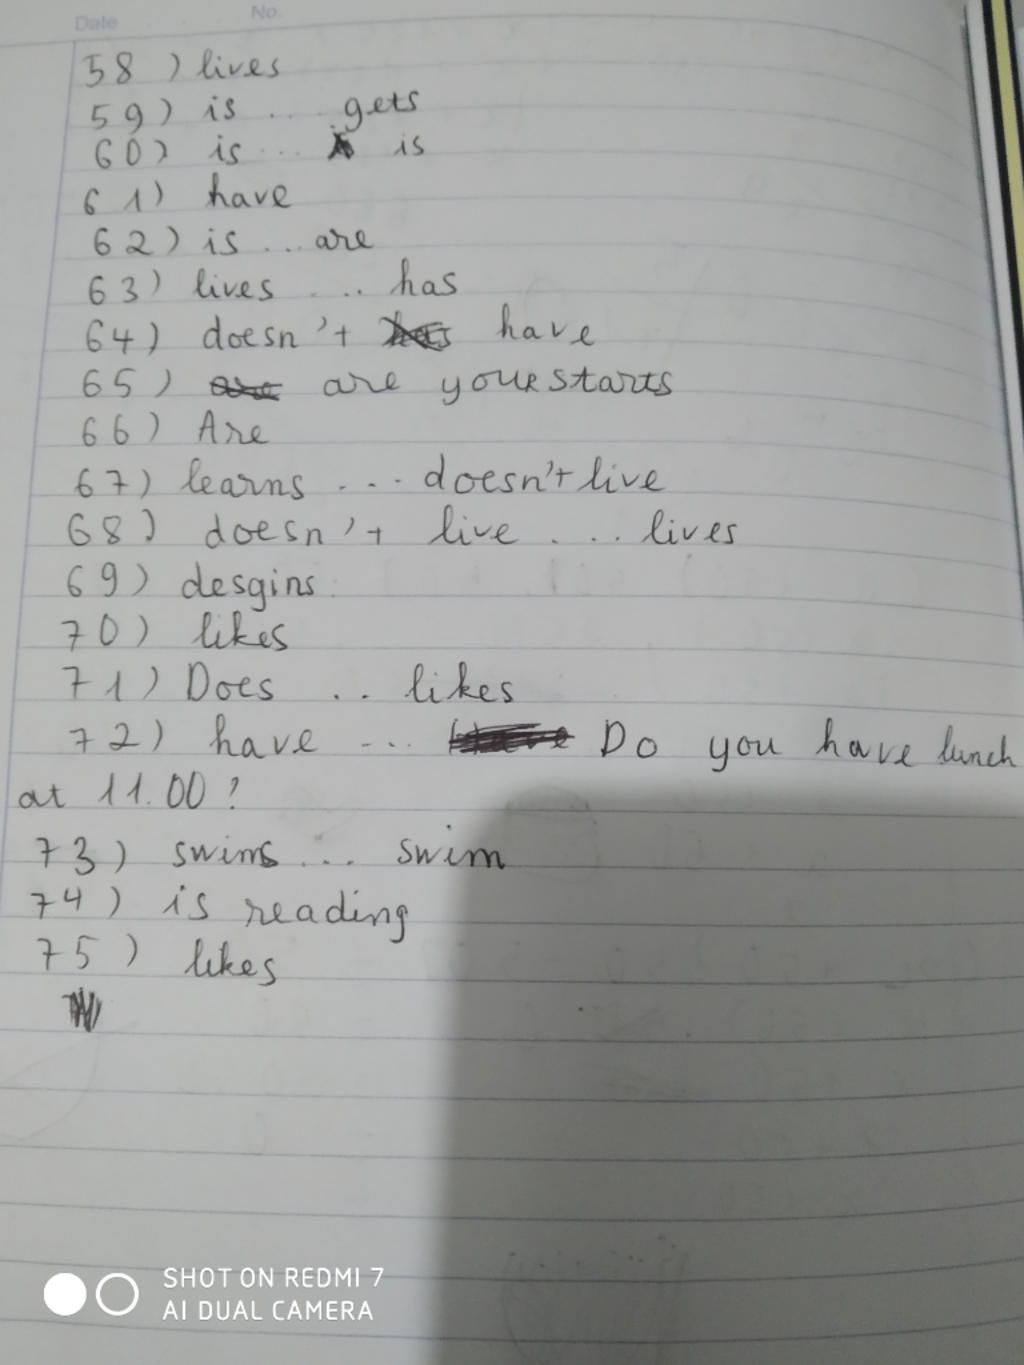 Date No.
58 ) lives
59 ) is .... gets
60 ) is ... is
61 ) have
62 ) is ... are
63 ) lives .... has
64 ) doesn't have
65 ) are your starts
66 ) Are
67 ) learns ... doesn't live
68 ) doesn't live ... lives
69 ) desgins
70 ) likes
71 ) Does .. likes
72 ) have ... Do you have lunch
at 11.00 ?
73 ) swims ... swim
74 ) is reading
75 ) likes
SHOT ON REDMI 7
AI DUAL CAMERA